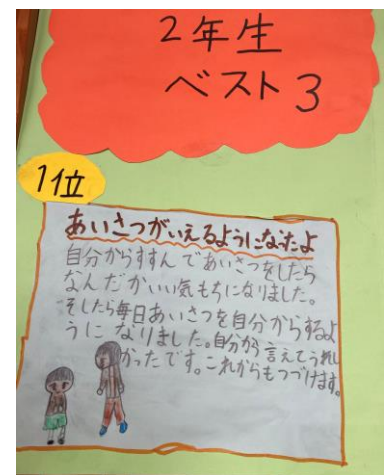 2年生
ベスト3
1位
あいさつがいえるようになったよ
自分からすすんであいさつをしたら
なんだかいい気もちになりました。
そしたら毎日あいさつを自分からするよ
うになりました。自分から言えてうれし
かったです。これからもつづけます。